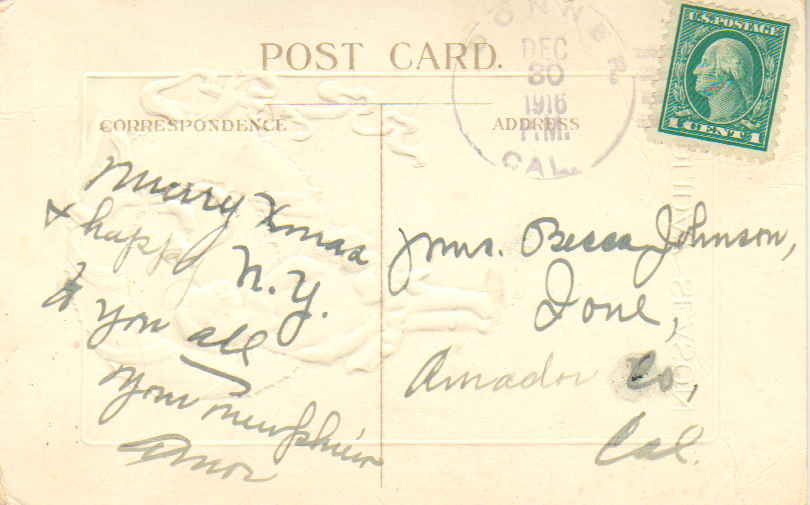 POST CARD.
DONNER
DEC
30
1916
P.M.
CAL.
U.S. POSTAGE
1 CENT 1
CORRESPONDENCE
ADDRESS
Merry Xmas
& happy N.Y.
to you all
your newphiew
Mrs. Becca Johnson,
Ione,
Amador Co,
Cal.
SEASON